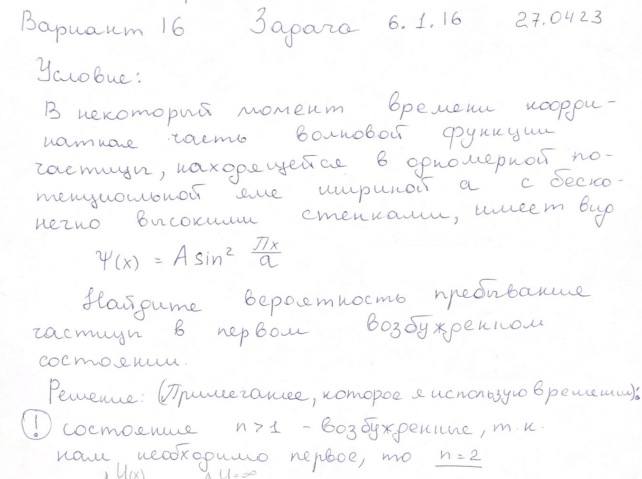 Вариант 16 Задача 6.1.16 27.0423
Условие:
В некоторый момент времени коорди-
натная часть волновой функции
частицы, находящейся в одномерной по-
тенциальной яме шириной a с беско-
нечно высокими стенками, имеет вид
Ψ(x) = A sin² Πx/a
Найдите вероятность пребывания
частицы в первом возбужденном
состоянии.
Решение: (Примечание, которое я использую в решении):
! состояние n>1 - возбужденные, т.к.
нам необходимо первое, то n=2
U(x) U=∞